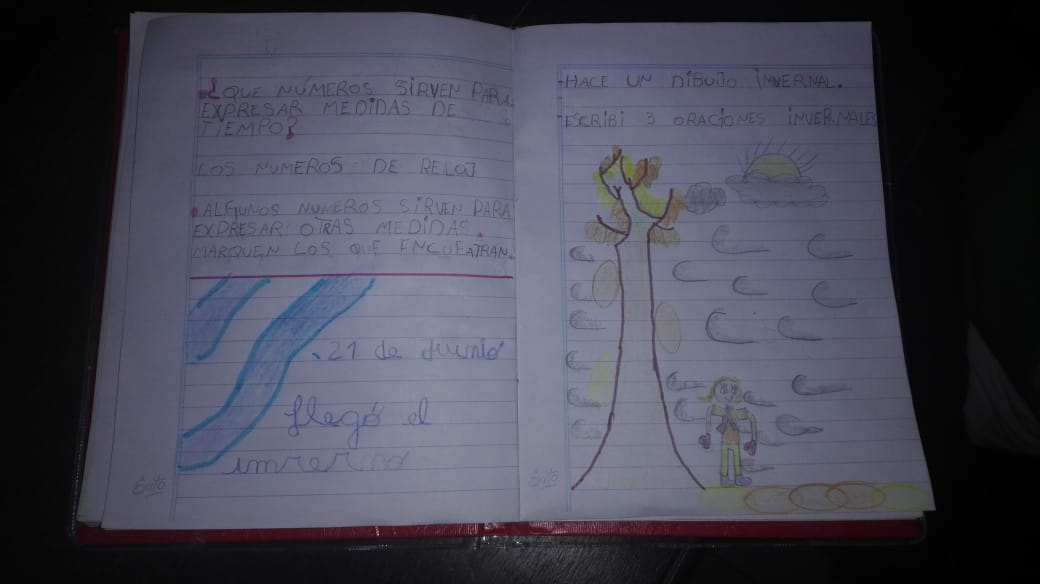 ¿QUE NÚMEROS SIRVEN PARA
EXPRESAR MEDIDAS DE
TIEMPO?
LOS NUMEROS DE RELOJ
. ALGUNOS NUMEROS SIRVEN PARA
EXPRESAR OTRAS MEDIDAS.
MARQUEN LOS QUE ENCUEATRAN.
. 21 de Junio
llegó el
invierno
Éxito
- HACE UN DIBUJO INVERNAL.
- ESCRIBI 3 ORACIONES INVERNALES
Éxito